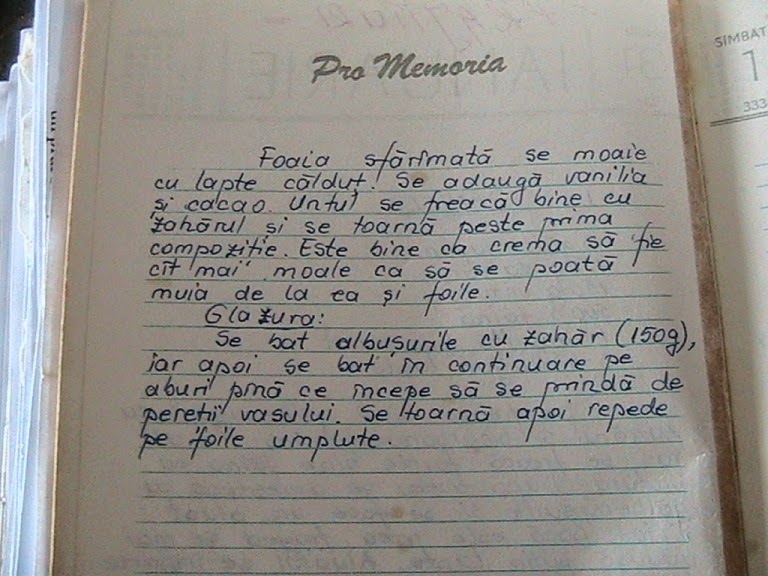 Pro Memoria
SIMBAT
1
333
Foaia sfărîmată se moaie
cu lapte călduț. Se adaugă vanilia
și cacao. Untul se freacă bine cu
zahărul și se toarnă peste prima
compoziție. Este bine ca crema să fie
cît mai moale ca să se poată
muia de la ea și foile.
Glazura:
Se bat albușurile cu zahăr (150g),
iar apoi se bat în continuare pe
aburi pînă ce începe să se prindă de
pereții vasului. Se toarnă apoi repede
pe foile umplute.